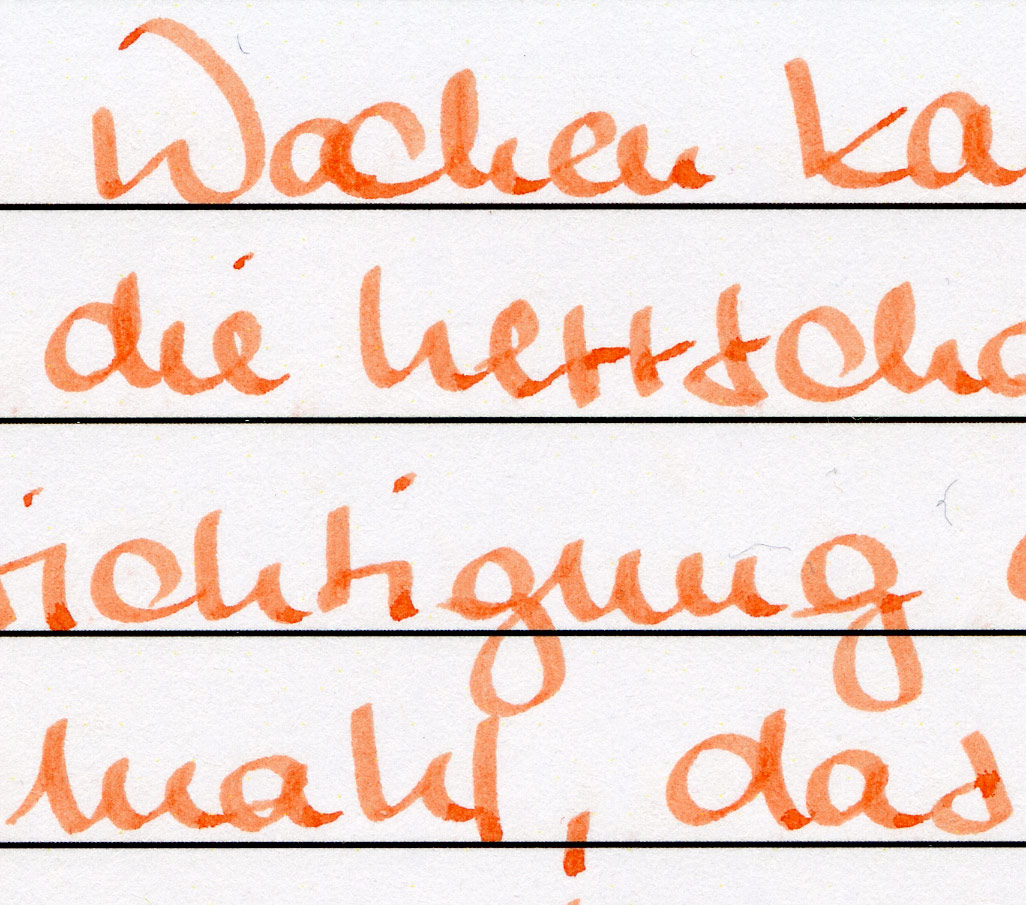 Wochen ka
die herrscha
ichtigung
mahl, das